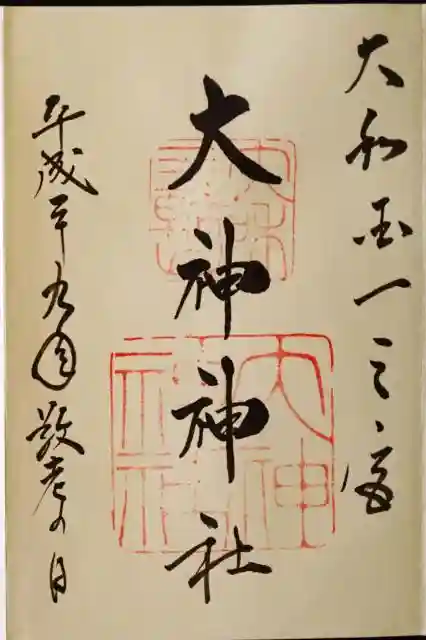 大和国一之宮
大神神社
平成二十九年敬老の日
大神神社